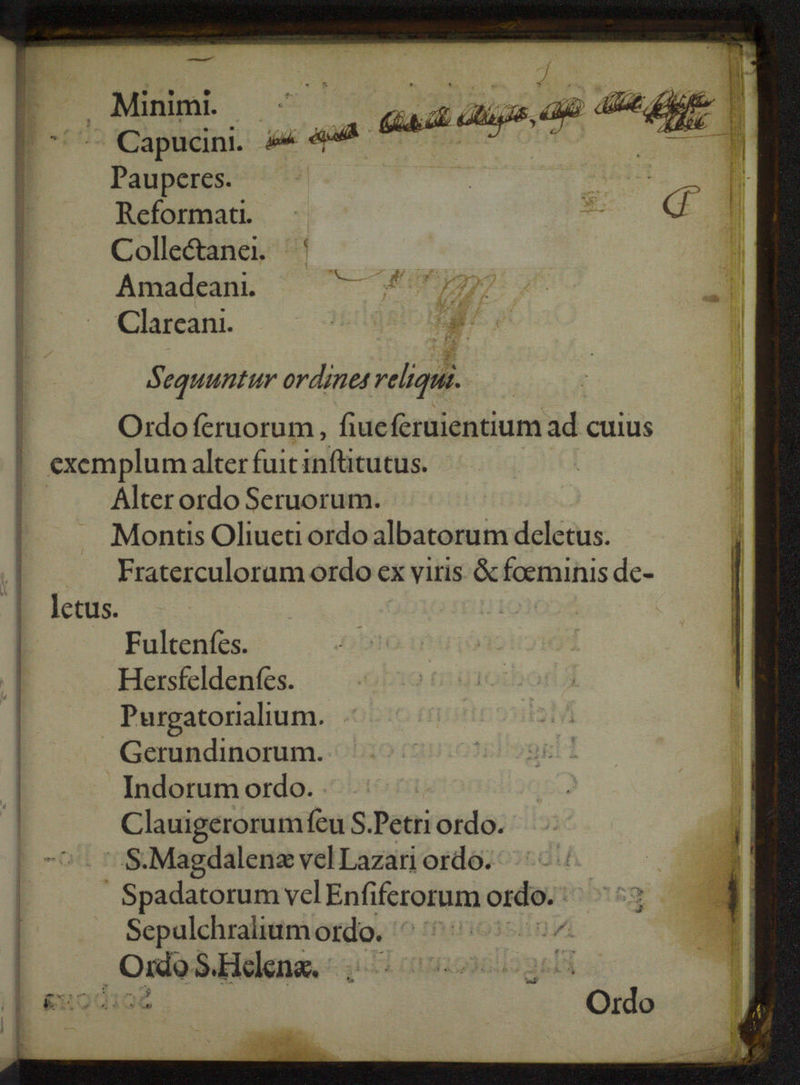 Minimi.
Capucini.
Pauperes.
Reformati.
Collectanei.
Amadeani.
Clareani.
Sequuntur ordines reliqui.
Ordo ſeruorum, ſiue ſeruientium ad cuius
exemplum alter fuit inſtitutus.
Alter ordo Seruorum.
Montis Oliueti ordo albatorum deletus.
Fraterculorum ordo ex viris & fœminis de-
letus.
Fultenſes.
Hersfeldenſes.
Purgatorialium.
Gerundinorum.
Indorum ordo.
Clauigerorum ſeu S.Petri ordo.
S.Magdalenæ vel Lazari ordo.
Spadatorum vel Enſiferorum ordo.
Sepulchralium ordo.
Ordo S.Helenæ.
Ordo